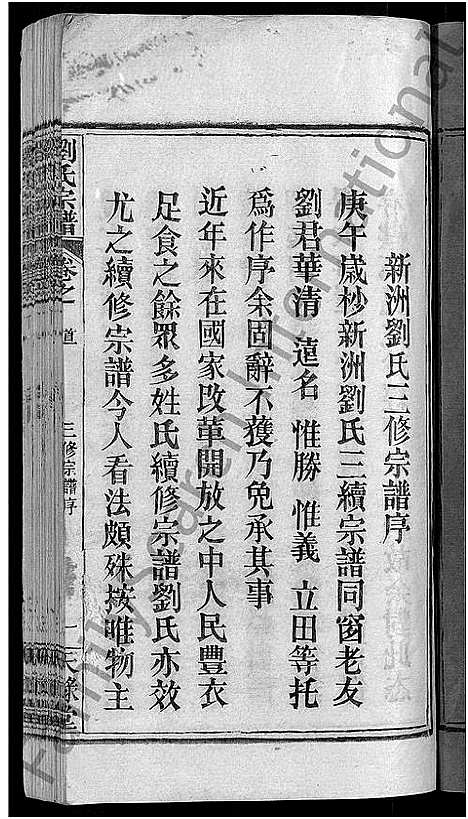 新洲劉氏三修宗譜序
庚午歲杪新洲劉氏三續宗譜同窗老友
劉君華清 遠名 惟勝 惟義 立田等托
爲作序余固辭不獲乃免承其事
近年來在國家改革開放之中人民豐衣
足食之餘眾多姓氏續修宗譜劉氏亦效
尤之續修宗譜今人看法頗殊按唯物主
劉氏宗譜 卷之首 三修宗譜序 一 天祿堂
FamilySearch International